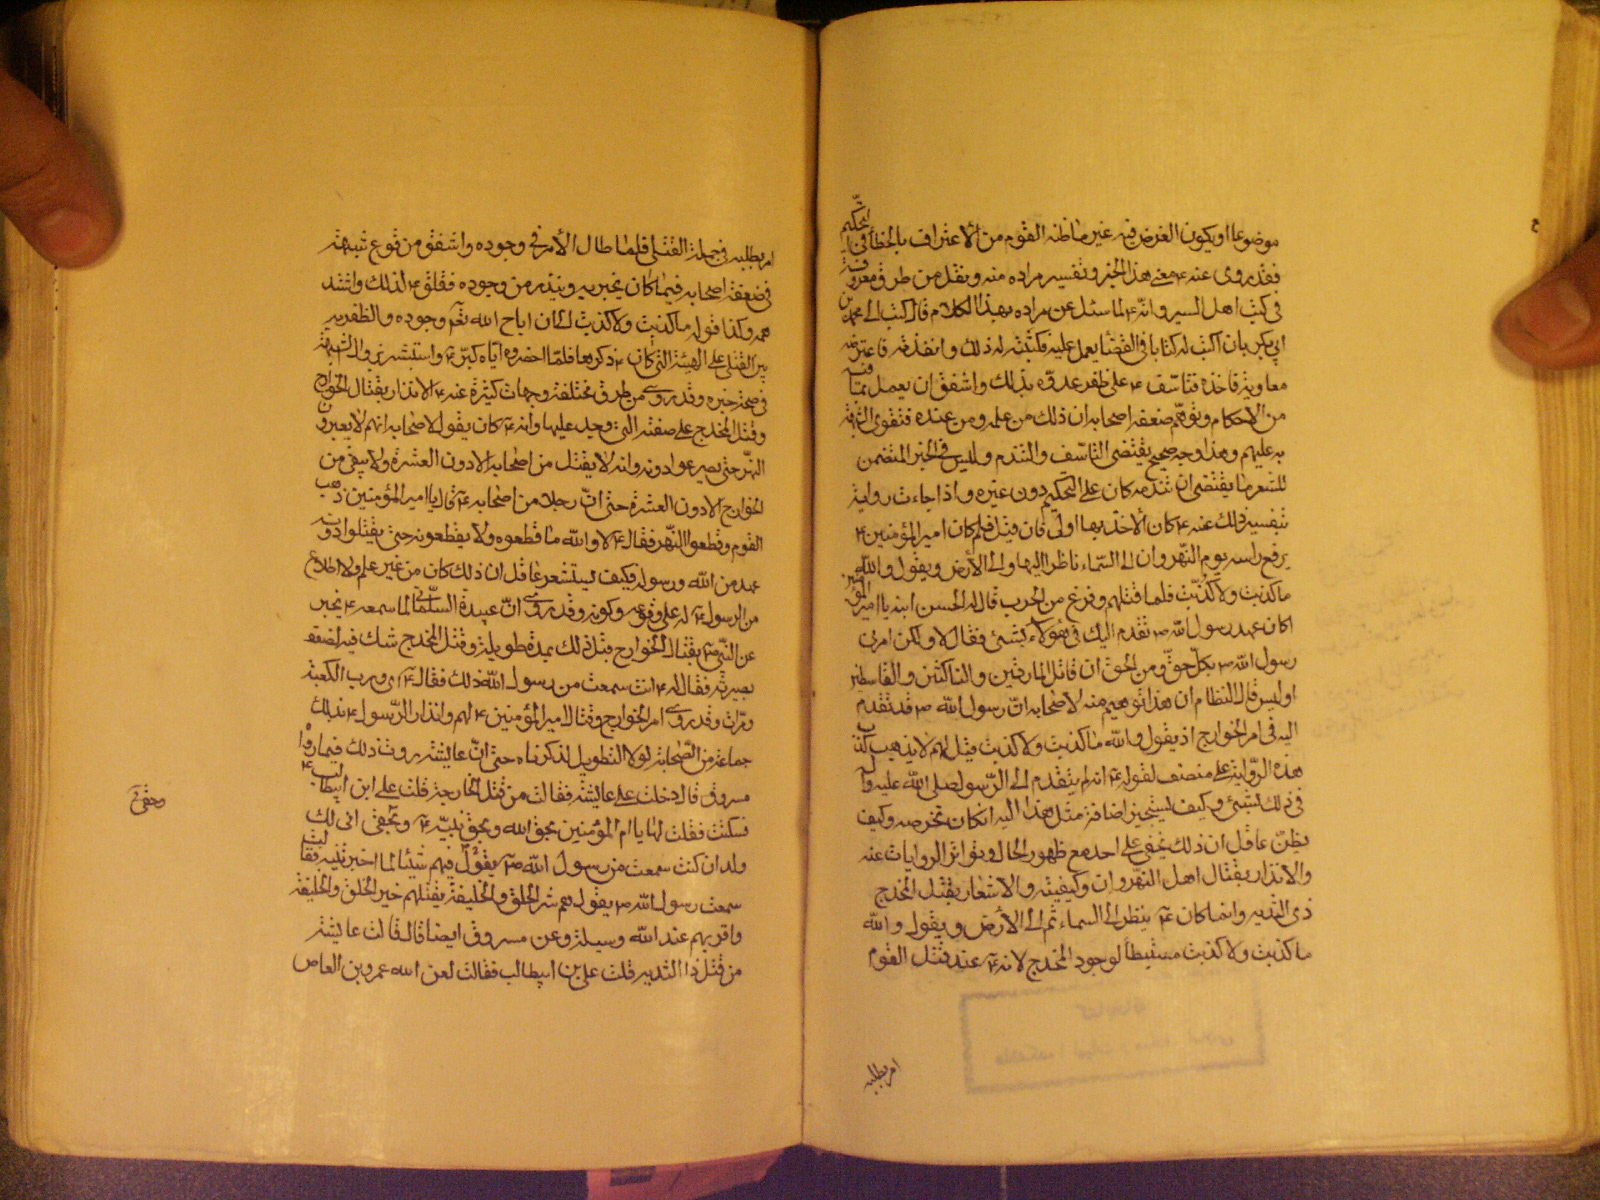 موضوعا او يكون الغرض فيه غير ما ظنه القوم من الاعتراف بالخطأ فى التحكيم
فقد روى عنه ۴ معنى هذا الخبر و تفسير مراده منه و نقل من طرق معروفة
فى كتب اهل السير و انه ۴ لما سئل عن مراده بهذا الكلام قال كتب الى محمد بن
ابى بكر بان اكتب له كتابا فى القضايا يعمل عليه فكتبت له ذلك و انفذته فاعترضه
معاوية فاخذه فتاسّف ۴ على ظفر عدوّه بذلك و اشفق ان يعمل بما فيه
من الاحكام و يتوهّم ضعفة اصحابه ان ذلك من علمه و من عنده فتقوى الشبهة
به عليهم و هذا وجه صحيح يقتضى التاسّف و التندم و ليس فى الخبر المتضمن
للشعر ما يقتضى ان تندمه كان على التحكيم دون غيره و اذا جاءت رواية
بتفسير ذلك عنه ۴ كان الأخذ بها اولى فان قيل فلم كان امير المؤمنين ۴
يرفع راسه يوم النهروان الى السّماء ناظرا اليها و الى الأرض و يقول و اللّه
ما كذبت و لا كُذبت فلما قتلهم و فرغ من الحرب قال له الحسن ابنه يا امير المؤمنين
اكان عهد رسول اللّه ص تقدم اليك فى هؤلاء بشئ فقال لا و لكن امرنى
رسول اللّه ص بكل حقّ و من الحق ان قاتل المارقين و الناكثين و القاسطين
او ليس قال النظام ان هذا توهيم منه لاصحابه انّ رسول اللّه ص قد تقدم
اليه فى امر الخوارج اذ يقول و اللّه ما كذبت و لا كذبت قيل لهم لا يذهب كذب
هذه الرّواية على منصف لقوله ۴ انه لم يتقدم الى الرّسول صلى اللّه عليه و آله
فى ذلك بشئ و كيف يستجيز اضافة مثل هذا اليه ان كان تخرصه و كيف
يظنّ عاقل ان ذلك يخفى على احد مع ظهور الحال و تواتر الروايات عنه
و الانذار بقتال اهل النهروان و كيفيته و الاشعار بقتل المخدج
ذى الثديه و انما كان ۴ ينظر الى السماء ثم الى الأرض و يقول و اللّه
ما كذبت و لا كذبت مستبطأ لوجود المخدج لانه ۴ عند قتل القوم
امر بطلبه
امر بطلبه فى جملة القتلى فلما طال الأمر فى وجوده و اشفق من وقوع شبهة
فى ضعفة اصحابه فيما كان يخبر به و ينذر من وجوده فقلق ۴ لذلك و اشتد
همه و كذا قوله ما كذبت و لا كذبت الى ان اباح اللّه تعم وجوده و الظفر به
بين القتلى على الهيئة التى كان ۴ ذكرها فلما احضروه اياه كبّر ۴ و استبشر بزوال الشبهة
فى صحة خبره و قد روى من طرق مختلفة و جهات كثيرة عنه ۴ الانذار بقتال الخوارج
و قتل المخدج على صفته التى وجد عليها و انه ۴ كان يقول لاصحابه انهم لا يعبرون
النهر حتى يصرعوا دونه و انه لا يقتل من اصحابه الا دون العشرة و لا يبقى من
الخوارج الا دون العشرة حتى انّ رجلا من اصحابه ۴ قال يا امير المؤمنين ذهب
القوم و قطعوا النّهر فقال ۴ لا و اللّه ما قطعوه و لا يقطعونه حتى يقتلوا دونه
عهد من اللّه و رسوله فكيف يستشعر عاقل ان ذلك كان من غير علم و لا اطلاع
من الرسول ۴ له على وقوعه و كونه و قد روى انّ عبيدة السلّمانى لما سمعه ۴ يخبر
عن النّبى ص بقتال الخوارج قبل ذلك بمدة طويلة و قتل المخدج شك فيه لضعف
بصيرته فقال له ۴ انت سمعت من رسول اللّه ذلك فقال ۴ اى و رب الكعبة
مرّات و قد روى امر الخوارج و قتال امير المؤمنين ۴ لهم و انذار الرّسول ۴ بذلك
جماعة من الصّحابة لو لا التطويل لذكرناه حتى انّ عايشة روت ذلك فيما رواه
مسروق قال دخلت على عايشة فقالت من قتل الخارجة قلت على ابن ابيطالب ۴
فسكتت فقلت لها يا ام المؤمنين بحق اللّه و بحق نبيّه ۴ و بحقى انى لك
وبحقى خ
ولد ان كنت سمعت من رسول اللّه ص يقول فيهم شيئا لما اخبرتنيه فقالت
سمعت رسول اللّه ص يقول هم شر الخلق و الخليفة يقتلهم خير الخلق و الخليفة
و اقربهم عند اللّه وسيلة و عن مسروق ايضا قال قالت عايشة
من قتل ذا الثديه قلت على بن ابيطالب فقالت لعن اللّه عمرو بن العاص